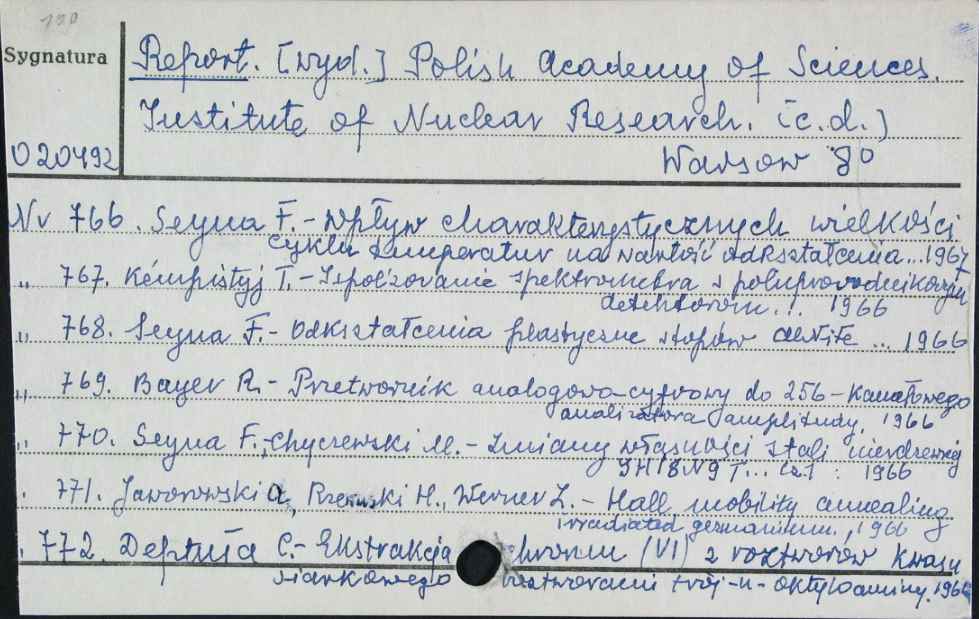 130
Sygnatura
Report. [wyd.] Polish Academy of Sciences.
Institute of Nuclear Research. [c.d.]
020492
Warsow 8°
Nr 766. Seyna F. - Wpływ charakterystycznych wielkości
cyklu temperatur na wartość odkształcenia ... 1967
" 767. Kempistyj T. - Ispolzovanie spektrometra s poluprovodnikovym
detektorom... 1966
" 768. Seyna F. - Odkształcenia plastyczne stopów ... 1966
" 769. Bayer R. - Przetwornik analogowo-cyfrowy do 256-kanałowego
analizatora amplitudy. 1966
" 770. Seyna F., Chyczewski M. - Zmiany własności stali nierdzewnej
... cz. 1 : 1966
" 771. Jaworowski A., H., Werner Z. - Hall mobility annealing
irradiated germanium., 1966
" 772. Deptuła C. - Ekstrakcja chromu (VI) z roztworów kwasu
siarkowego roztworami trój-n-oktyloaminy. 1966